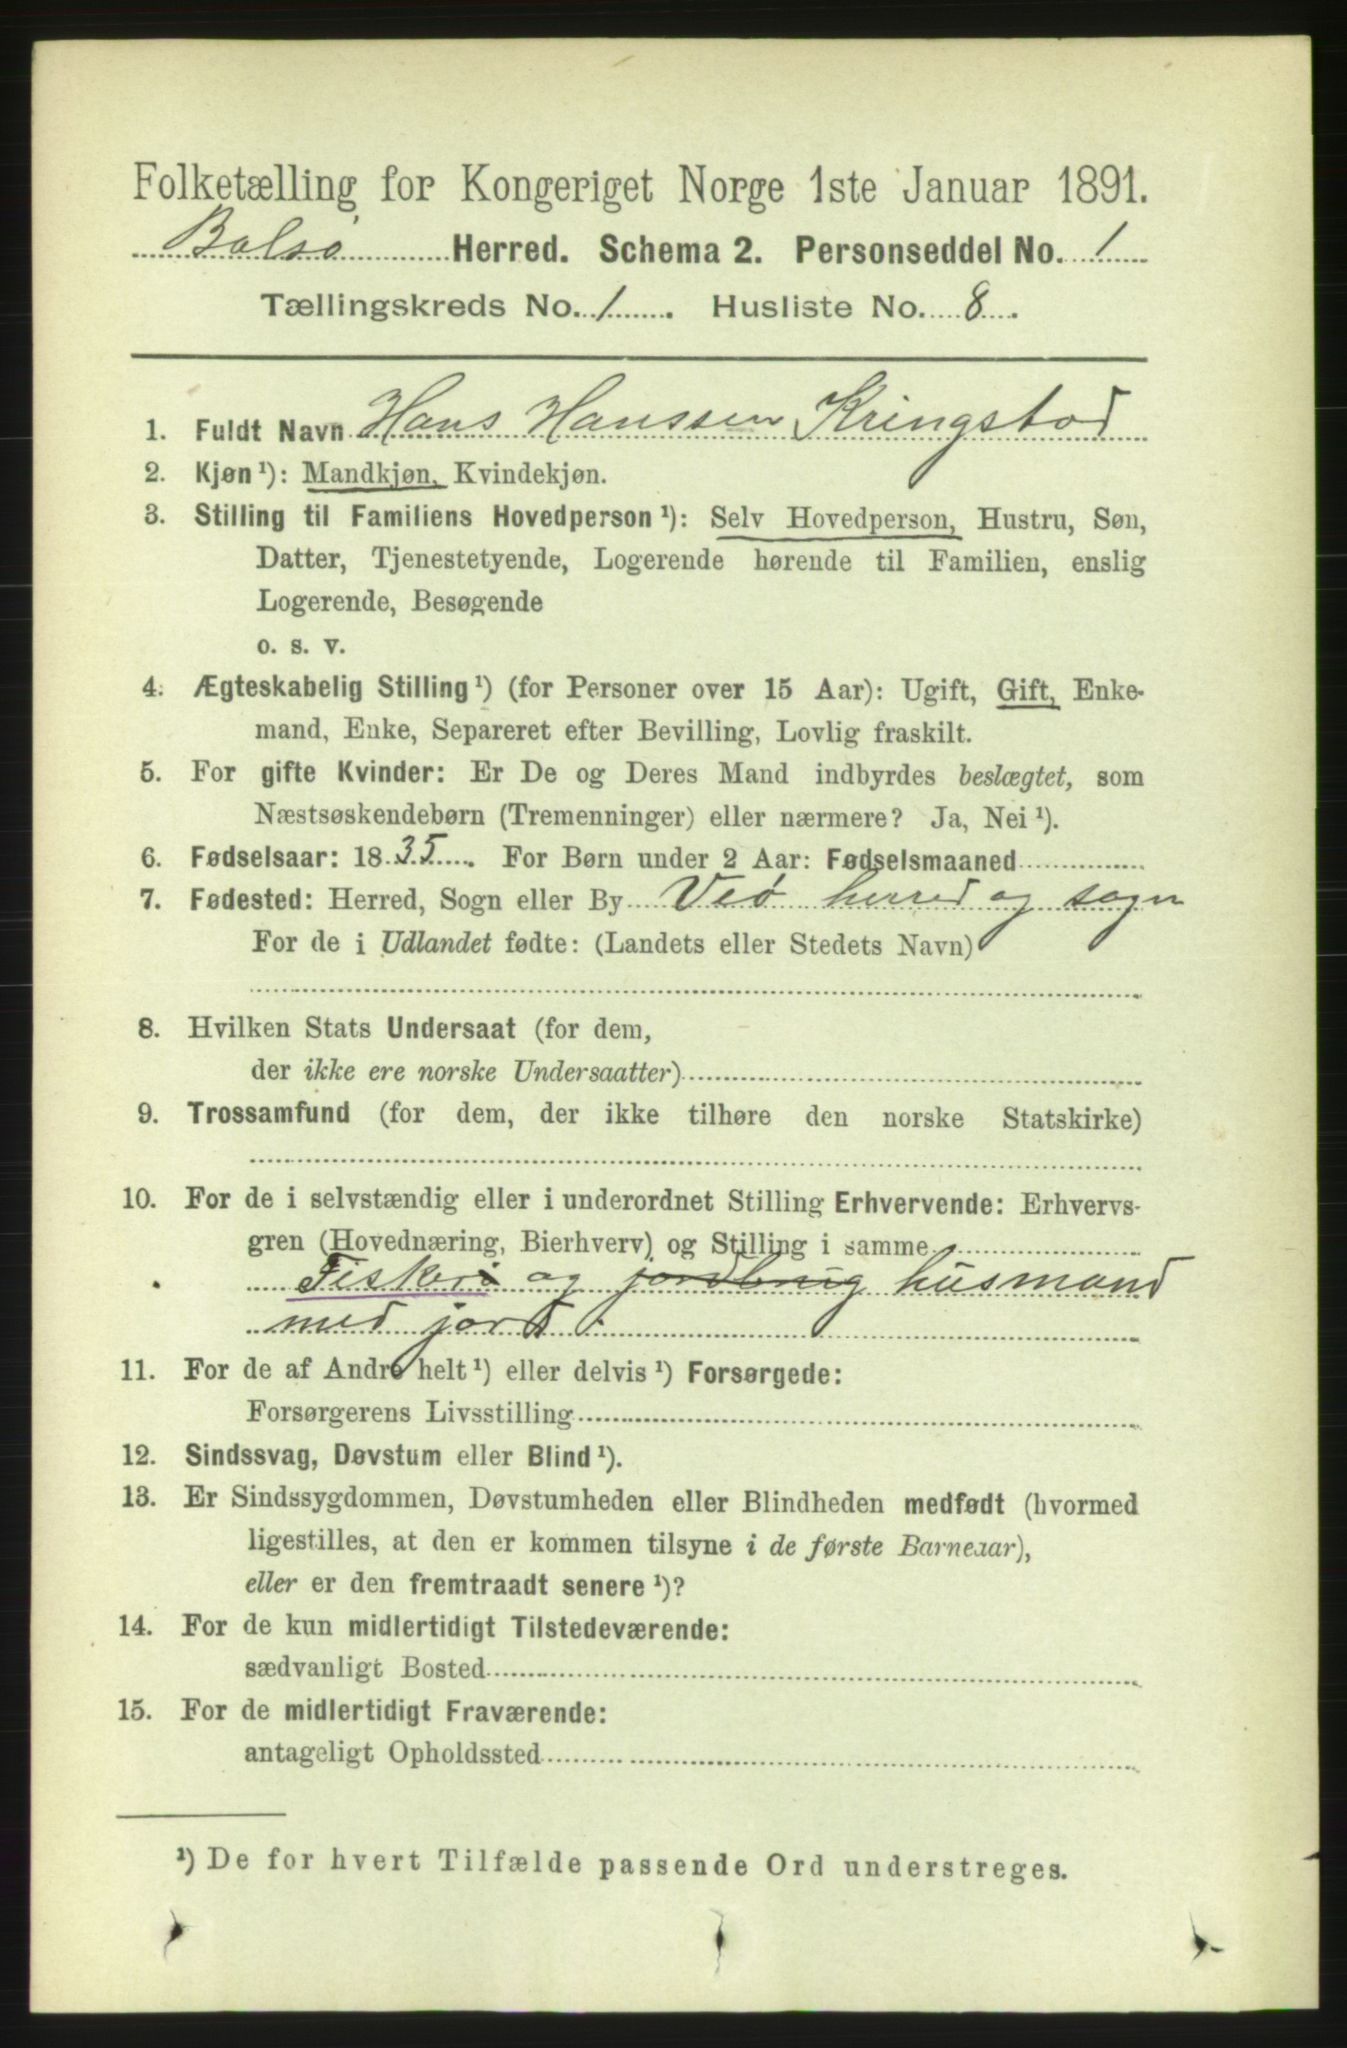 Folketælling for Kongeriget Norge 1ste Januar 1891.
Bolsø Herred. Schema 2. Personseddel No. 1
Tællingskreds No. 1. Husliste No. 8.
1. Fuldt Navn Hans Hanssen Kringstad
2. Kjøn ¹): Mandkjøn, Kvindekjøn.
3. Stilling til Familiens Hovedperson ¹): Selv Hovedperson, Hustru, Søn,
Datter, Tjenestetyende, Logerende hørende til Familien, enslig
Logerende, Besøgende
o. s. v.
4. Ægteskabelig Stilling ¹) (for Personer over 15 Aar): Ugift, Gift, Enke-
mand, Enke, Separeret efter Bevilling, Lovlig fraskilt.
5. For gifte Kvinder: Er De og Deres Mand indbyrdes beslægtet, som
Næstsøskendebørn (Tremenninger) eller nærmere? Ja, Nei ¹).
6. Fødselsaar: 1835. For Børn under 2 Aar: Fødselsmaaned
7. Fødested: Herred, Sogn eller By Veø herred og sogn
For de i Udlandet fødte: (Landets eller Stedets Navn)
8. Hvilken Stats Undersaat (for dem,
der ikke ere norske Undersaatter)
9. Trossamfund (for dem, der ikke tilhøre den norske Statskirke)
10. For de i selvstændig eller i underordnet Stilling Erhvervende: Erhvervs-
gren (Hovednæring, Bierhverv) og Stilling i samme
Fiskeri og jordbrug husmand
med jord.
11. For de af Andre helt ¹) eller delvis ¹) Forsørgede:
Forsørgerens Livsstilling
12. Sindssvag, Døvstum eller Blind ¹).
13. Er Sindssygdommen, Døvstumheden eller Blindheden medfødt (hvormed
ligestilles, at den er kommen tilsyne i de første Barneaar),
eller er den fremtraadt senere ¹)?
14. For de kun midlertidigt Tilstedeværende:
sædvanligt Bosted
15. For de midlertidigt Fraværende:
antageligt Opholdssted
¹) De for hvert Tilfælde passende Ord understreges.